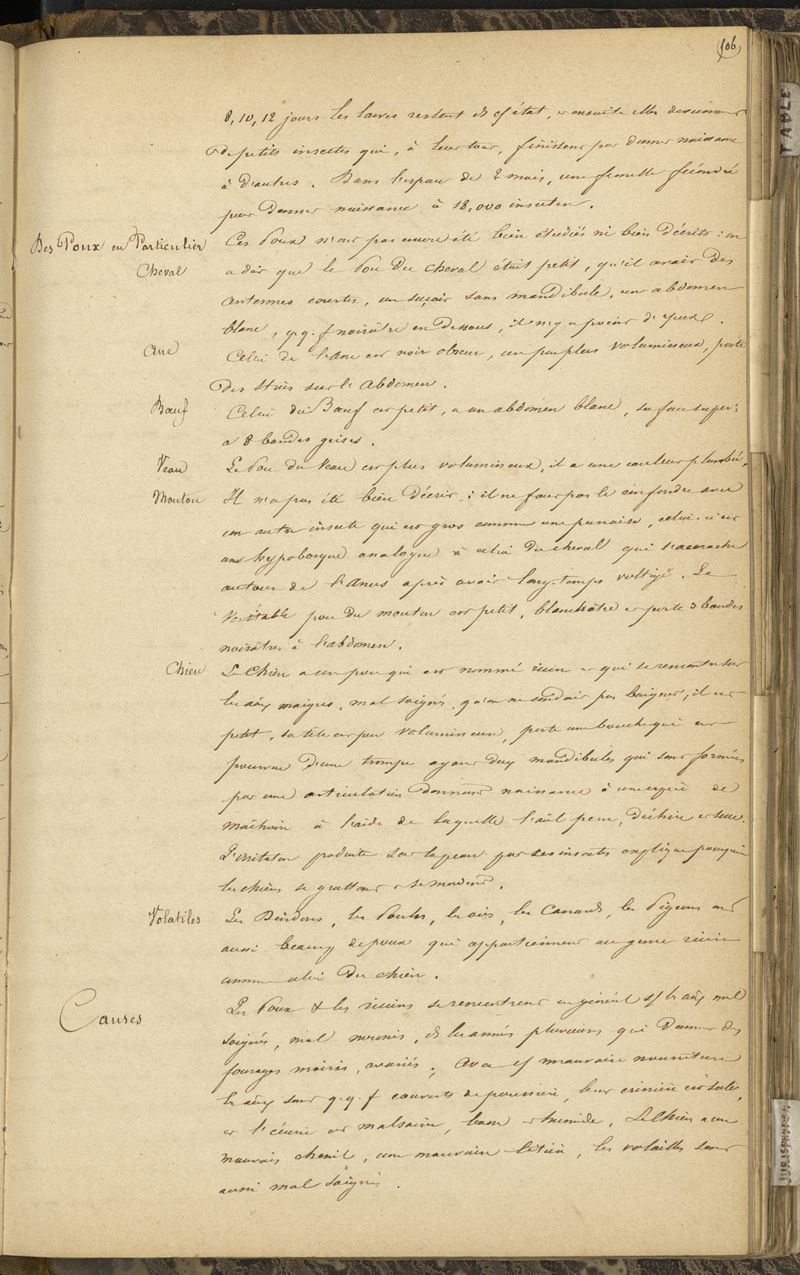 106
TABLE
8, 10, 12 jours les larves restent ds cet état, et ensuite elles deviennent
de petits insectes qui, à leur tour, finissent par donner naissance
à d'autres. Dans l'espace de 2 mois, une femelle fécondée
peut donner naissance à 18,000 insectes.
Des Poux en Particulier Ces Poux n'ont pas encore été bien étudiés ni bien décrits : on
Cheval a dit que le Pou du cheval était petit, qu'il avait des
antennes courtes, un suçoir sans mandibule, un abdomen
blanc, q.q.f noirâtre en dessous, il n'y a point de yeux.
Ane Celui de l'ane est noir obscur, un peu plus volumineux, porte
des stries sur l'abdomen.
Bœuf Celui du Bœuf est petit, a un abdomen blanc, sa face super:
a 8 bandes grises.
Veau Le Pou du Veau est plus volumineux, il a une couleur plombée,
Mouton Il n'a pas été bien décrit : il ne faut pas le confondre avec
un autre insecte qui est gros comme une punaise, celui-ci est
une hypobosque analogue à celui du cheval qui s'accroche
autour de l'anus après avoir long-temps voltigé. Le
véritable pou du mouton est petit, blanchâtre et porte 3 bandes
noirâtres à l'abdomen.
Chien Le Chien a un pou qui est nommé ricin et qui se rencontre sur
les aux maigres, mal soignés, qu'on ne conduit pas baigner; il est
petit, sa tête est peu volumineuse, porte une bouche qui est
pourvue d'une trompe ayant deux mandibules qui sont formées
par une articulation donnant naissance à une espèce de
mâchoire à l'aide de laquelle l'aal peut, déchire et suce.
L'irritation produite sur la peau par ces insectes explique pourquoi
les chiens se grattent et se mordent.
Volatiles Les Dindons, les Poules, les oies, les Canards, les Pigeons ont
aussi beaucoup de poux qui appartiennent au genre ricin
comme celui du chien.
Causes Les Poux & les ricins se rencontrent en général s/ les aux mal
soignés, mal nourris, ds les années pluvieuses qui donnent des
fourrages moisis, avariés; avec cette mauvaise nourriture
les aux sont q.q.f couverts de poussière, leur crinière est sale,
et l'écurie est malsaine, basse et humide. Le Chien a un
mauvais chenil, une mauvaise litière, les volailles sont
aussi mal soignés.